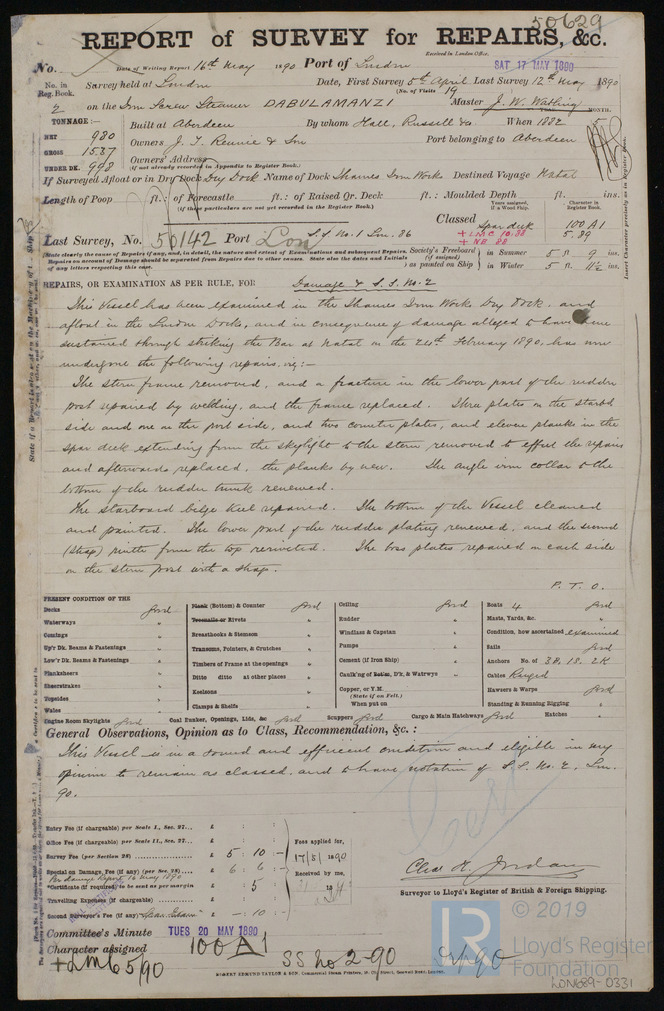 50629
REPORT of SURVEY for REPAIRS, &c.
Received in London Office,
No. Date of Writing Report 16th May 1890 Port of London SAT 17 MAY 1890
No. in Reg. Book. Survey held at London Date, First Survey 5th April Last Survey 12th May 1890
(No. of Visits 19
2 on the Iron Screw Steamer DABULAMANZI Master J. W. Watling
TONNAGE:— MONTH.
NET 980 Built at Aberdeen By whom Hall, Russell & Co. When 1882
GROSS 1537 Owners J. T. Rennie & Son Port belonging to Aberdeen
UNDER DK. 998 Owners' Address
(if not already recorded in Appendix to Register Book.)
If Surveyed Afloat or in Dry Dock Dry Dock Name of Dock Thames Iron Works Destined Voyage Natal
Length of Poop ft.: of Forecastle ft.: of Raised Qr. Deck ft.: Moulded Depth ft. ins.
(if these particulars are not yet recorded in the Register Book.)
Years assigned, if a Wood Ship. Character in Register Book.
Classed Spar deck 100 A1
+ LMC 10.88 5.89
+ NB 88
Last Survey, No. 50142 Port Lon S.S. No. 1 Lon. 86
State clearly the cause of Repairs (if any, and, in detail, the nature and extent of Examinations and subsequent Repairs.
Repairs on account of Damage should be separated from Repairs due to other causes. State also the dates and Initials
of any letters respecting this case.
Society's Freeboard (if assigned) as painted on Ship in Summer 5 ft. 9 ins.
in Winter 5 ft. 11½ ins.
REPAIRS, OR EXAMINATION AS PER RULE, FOR Damage & S.S. No. 2
This Vessel has been examined in the Thames Iron Works Dry Dock, and
afloat in the London Docks, and in consequence of damage alleged to have been
sustained through striking the Bar at Natal on the 24th February 1890, has now
undergone the following repairs, viz:—
The stern frame removed, and a fracture in the lower part of the rudder
post repaired by welding, and the frame replaced. Three plates on the starbd
side and one on the port side, and two counter plates, and eleven planks in the
spar deck extending from the skylight to the stern removed to effect the repairs
and afterwards replaced, the planks by new. The angle iron collar to the
bottom of the rudder trunk renewed.
The starboard bilge keel repaired. The bottom of the Vessel cleaned
and painted. The lower part of the rudder plating renewed, and the second
(strap) pintle from the top reriveted. The boss plates repaired on each side
on the stern post with a strap.
P. T. O.
PRESENT CONDITION OF THE
Decks good
Waterways "
Comings "
Up'r Dk. Beams & Fastenings "
Low'r Dk. Beams & Fastenings "
Planksheers "
Sheerstrakes "
Topsides "
Wales "
Engine Room Skylights good
Plank (Bottom) & Counter good
Treenails or Rivets "
Breasthooks & Stemson "
Transoms, Pointers, & Crutches "
Timbers of Frame at the openings "
Ditto ditto at other places "
Keelsons "
Clamps & Shelfs "
Coal Bunker, Openings, Lids, &c good
Ceiling good
Rudder "
Windlass & Capstan "
Pumps "
Cement (if Iron Ship) "
Caulk'ng of Bottom, D'k, & Watrwys "
Copper, or Y.M.
(State if on Felt.)
When put on
Scuppers good
Cargo & Main Hatchways good
Boats 4 good
Masts, Yards, &c. "
Condition, how ascertained examined
Sails good
Anchors No. of 3B. 1S. 2K
Cables Ranged
Hawsers & Warps good
Standing & Running Rigging "
Hatches "
General Observations, Opinion as to Class, Recommendation, &c. :
This Vessel is in a sound and efficient condition and eligible in my
opinion to remain as classed, and to have notation of S.S. No. 2, Lon.
90.
Entry Fee (if chargeable) per Scale I., Sec. 27... £ : :
Office Fee (if chargeable) per Scale II., Sec. 27... £ : :
Survey Fee (per Section 28) £ 5 : 10 : –
Special or Damage Fee (if any) (per Sec. 28) £ 6 : 6 : –
Per damage Report 16 May 1890
*Certificate (if required) to be sent as per margin : 5 :
Travelling Expenses (if chargeable) £ : :
Second Surveyor's Fee (if any) £ – : 10 :
Fees applied for,
17/5/1890
Received by me,
Chas H. Jordan
Surveyor to Lloyd's Register of British & Foreign Shipping.
Committee's Minute TUES 20 MAY 1890
Character assigned 100 A 1
+ LMC 5/90 SS No 2-90
ROBERT EDMUND TAYLOR & SON, Commercial Steam Printers, 19, Old Street, Goswell Road, London.
© 2019
LR Lloyd's Register
Foundation
LON689-0331